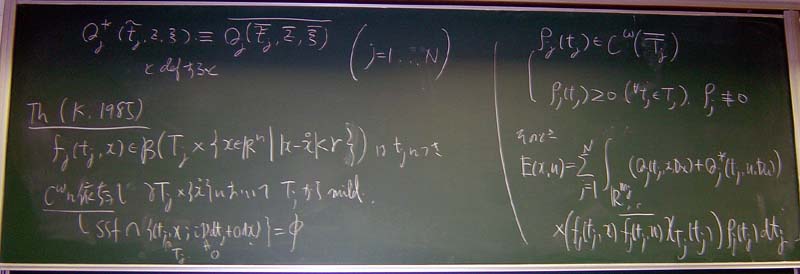 Q_j^*(t_j, z, ξ) ≡ \overline{Q_j(\bar{t}_j, \bar{z}, \bar{ξ})} (j=1…N)
と def する
Th (K. 1985)
f_j(t_j, x) ∈ B(T_j × {x∈R^n | |x-x°|<r}) は t_j につき
C^ω
∂T_j × {x°} において T_j から mild.
SSf ∩ {(t_j, x; dt_j+0dx)} = φ
T_j 0
ρ_j(t_j) ∈ C^ω(\overline{T_j})
ρ_j(t_j) ≥ 0 (∀t_j ∈ T_j). ρ_j ≢ 0
E(x,u) = Σ_{j=1}^{N} ∫_{R^{m_j}} (Q_j(t_j, x, D_x) + Q_j^*(t_j, u, D_u))
× (f_j(t_j, x) \overline{f_j(t_j, u)} χ_{T_j}(t_j)) ρ_j(t_j) dt_j